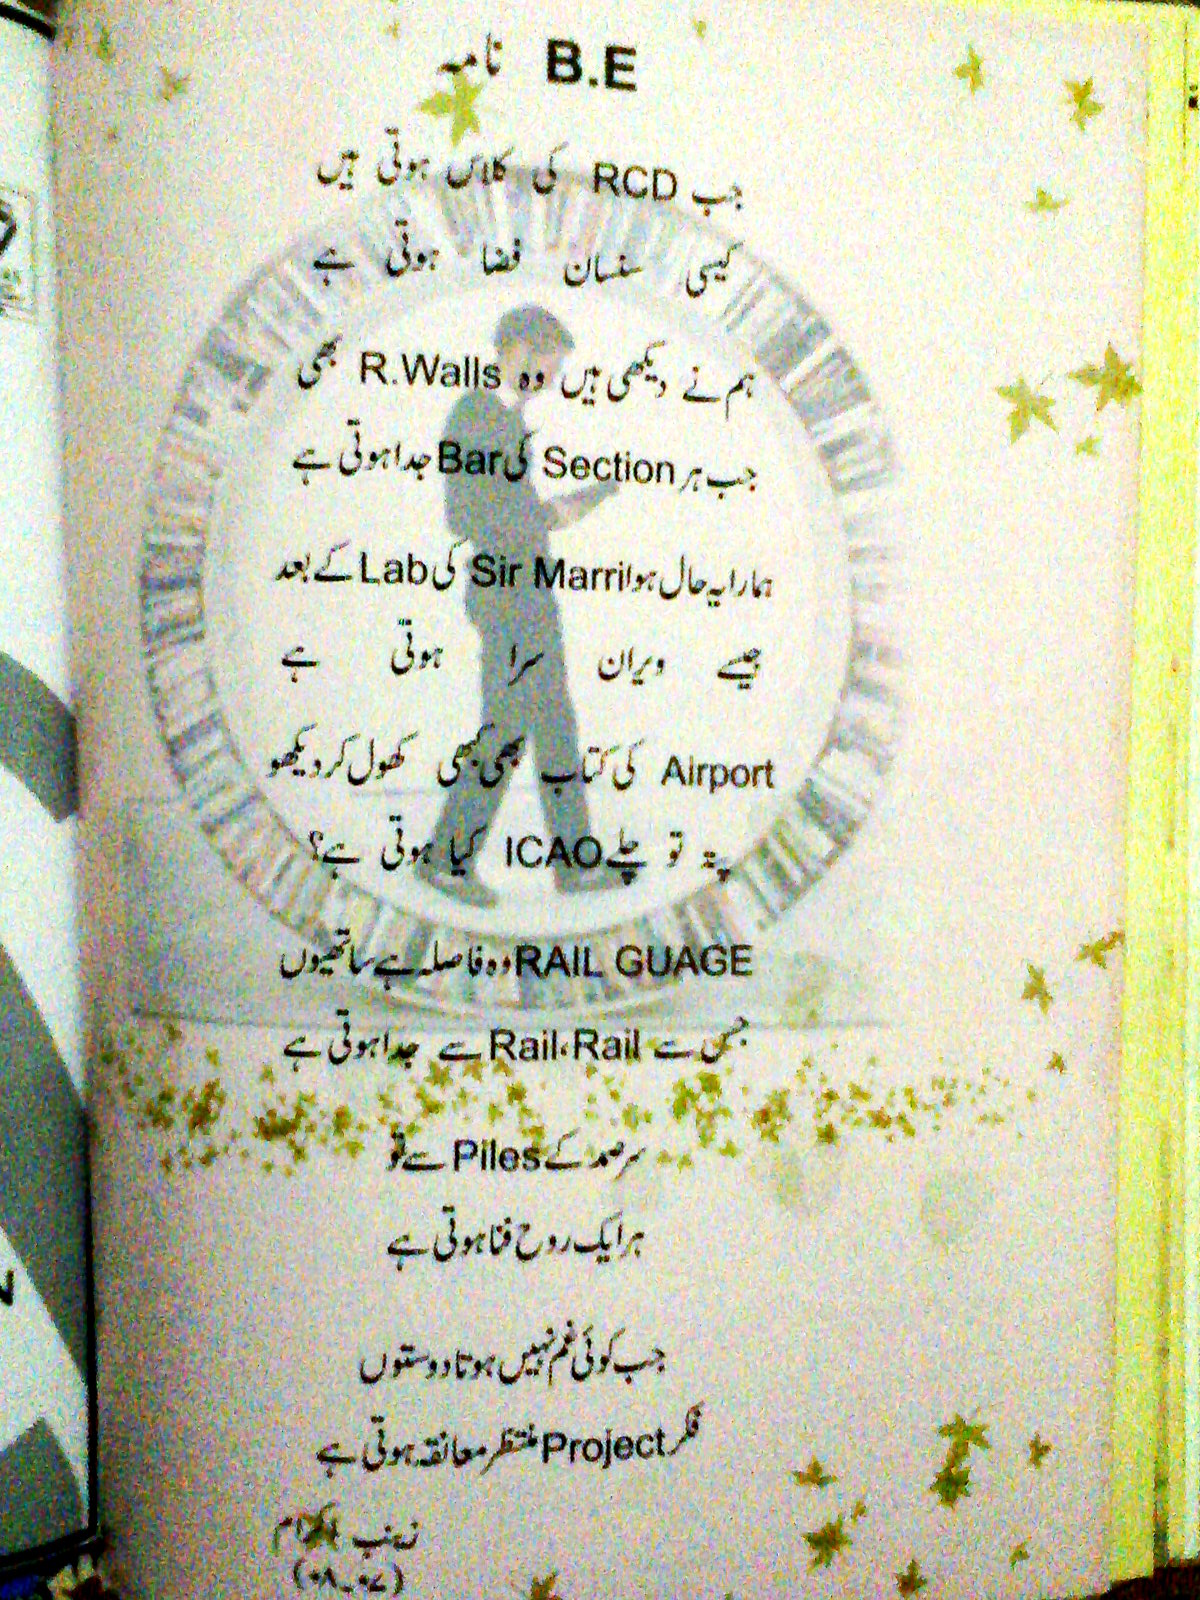 B.E نامہ
جب RCD کی کلاس ہوتی ہیں
کیسی سنسان فضا ہوتی ہے
ہم نے دیکھی ہیں وہ R.Walls بھی
جب ہر Section کی Bar جدا ہوتی ہے
ہمارا یہ حال ہوا Sir Marri کی Lab کے بعد
جیسے ویران سرا ہوتی ہے
Airport کی کتاب بھی کبھی کھول کر دیکھو
پتہ تو چلے ICAO کیا ہوتی ہے؟
RAIL GUAGE وہ فاصلہ ہے ساتھیوں
جس سے Rail،Rail سے جدا ہوتی ہے
سر صمد کے Piles سے تو
ہر ایک روح فنا ہوتی ہے
جب کوئی غم نہیں ہوتا دوستوں
فکر Project منتظر معانقہ ہوتی ہے
زینب اکرام
(۰۷-۰۸)